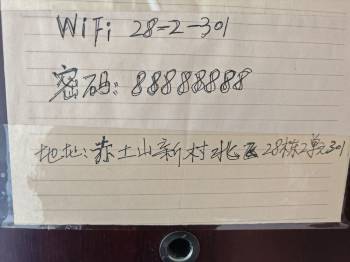 WiFi 28-2-301
密码: 88888888
地址: 赤土山新村北区28栋2单元301